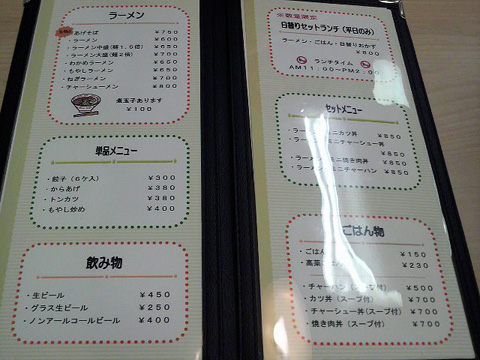 ラーメン
あげそば ¥750
・ラーメン ¥600
・ラーメン中盛(麺1.5倍) ¥650
・ラーメン大盛(麺2倍) ¥700
・わかめラーメン ¥650
・もやしラーメン ¥650
・ねぎラーメン ¥700
・チャーシューメン ¥800
煮玉子あります
¥100
単品メニュー
・餃子(6ケ入) ¥300
・からあげ ¥380
・トンカツ ¥380
・もやし炒め ¥400
飲み物
・生ビール ¥450
・グラス生ビール ¥250
・ノンアールコールビール ¥400
※数量限定
日替りセットランチ(平日のみ)
ラーメン・ごはん・日替りおかず
¥800
ランチタイム
AM11:00~PM2:00
セットメニュー
・ラーメン ミニカツ丼 ¥850
・ラーメン ミニチャーシュー丼
¥850
・ラーメン ミニ焼き肉丼 ¥850
・ラーメン ミニチャーハン ¥850
ごはん物
・ごはん ¥150
・高菜 ¥230
・チャーハン(スープ付) ¥500
・カツ丼(スープ付) ¥700
・チャーシュー丼(スープ付) ¥700
・焼き肉丼(スープ付) ¥700